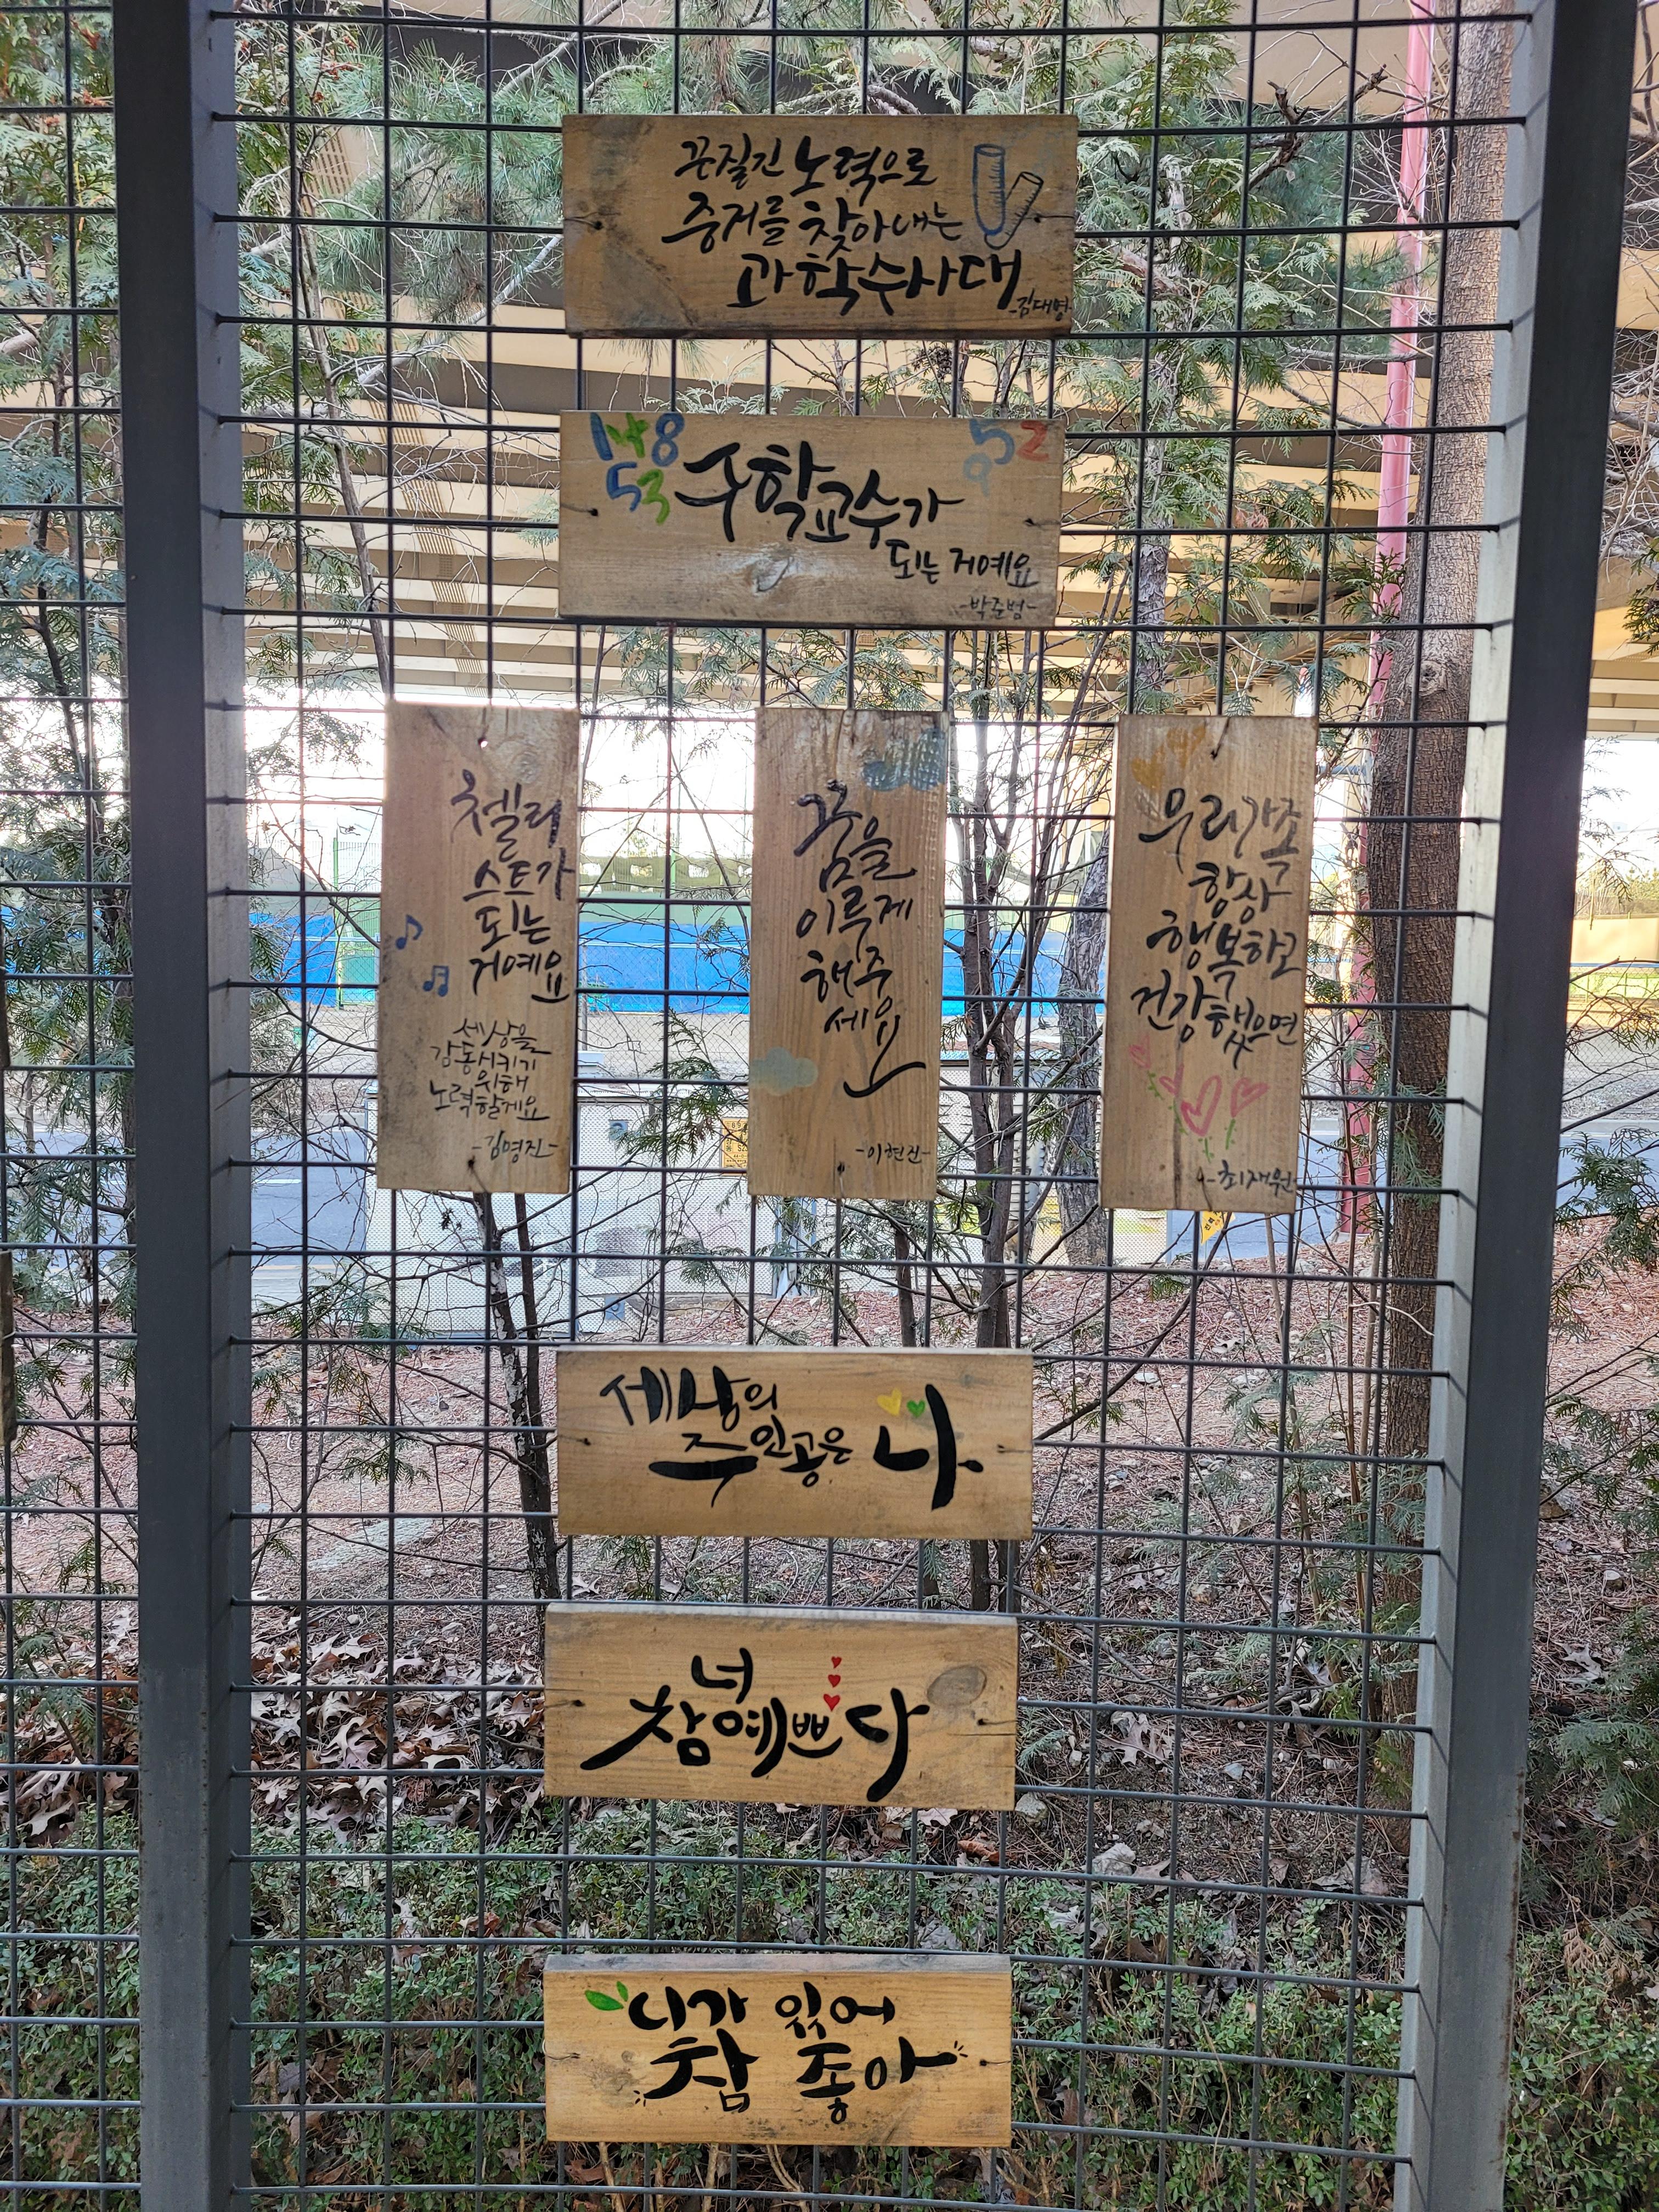 끈질긴 노력으로
증거를 찾아내는
과학수사대
-김대영-
148
53
52
9
수학교수가
되는 거예요
-박준범-
첼리
스트가
되는
거예요
세상을
감동시키기
위해
노력할게요
-김명진-
꿈을
이루게
해주
세요
-이현진-
우리가족
항상
행복하고
건강했으면
-최재원-
세상의
주인공은 나
너
참 예쁘다
니가 있어
참 좋아